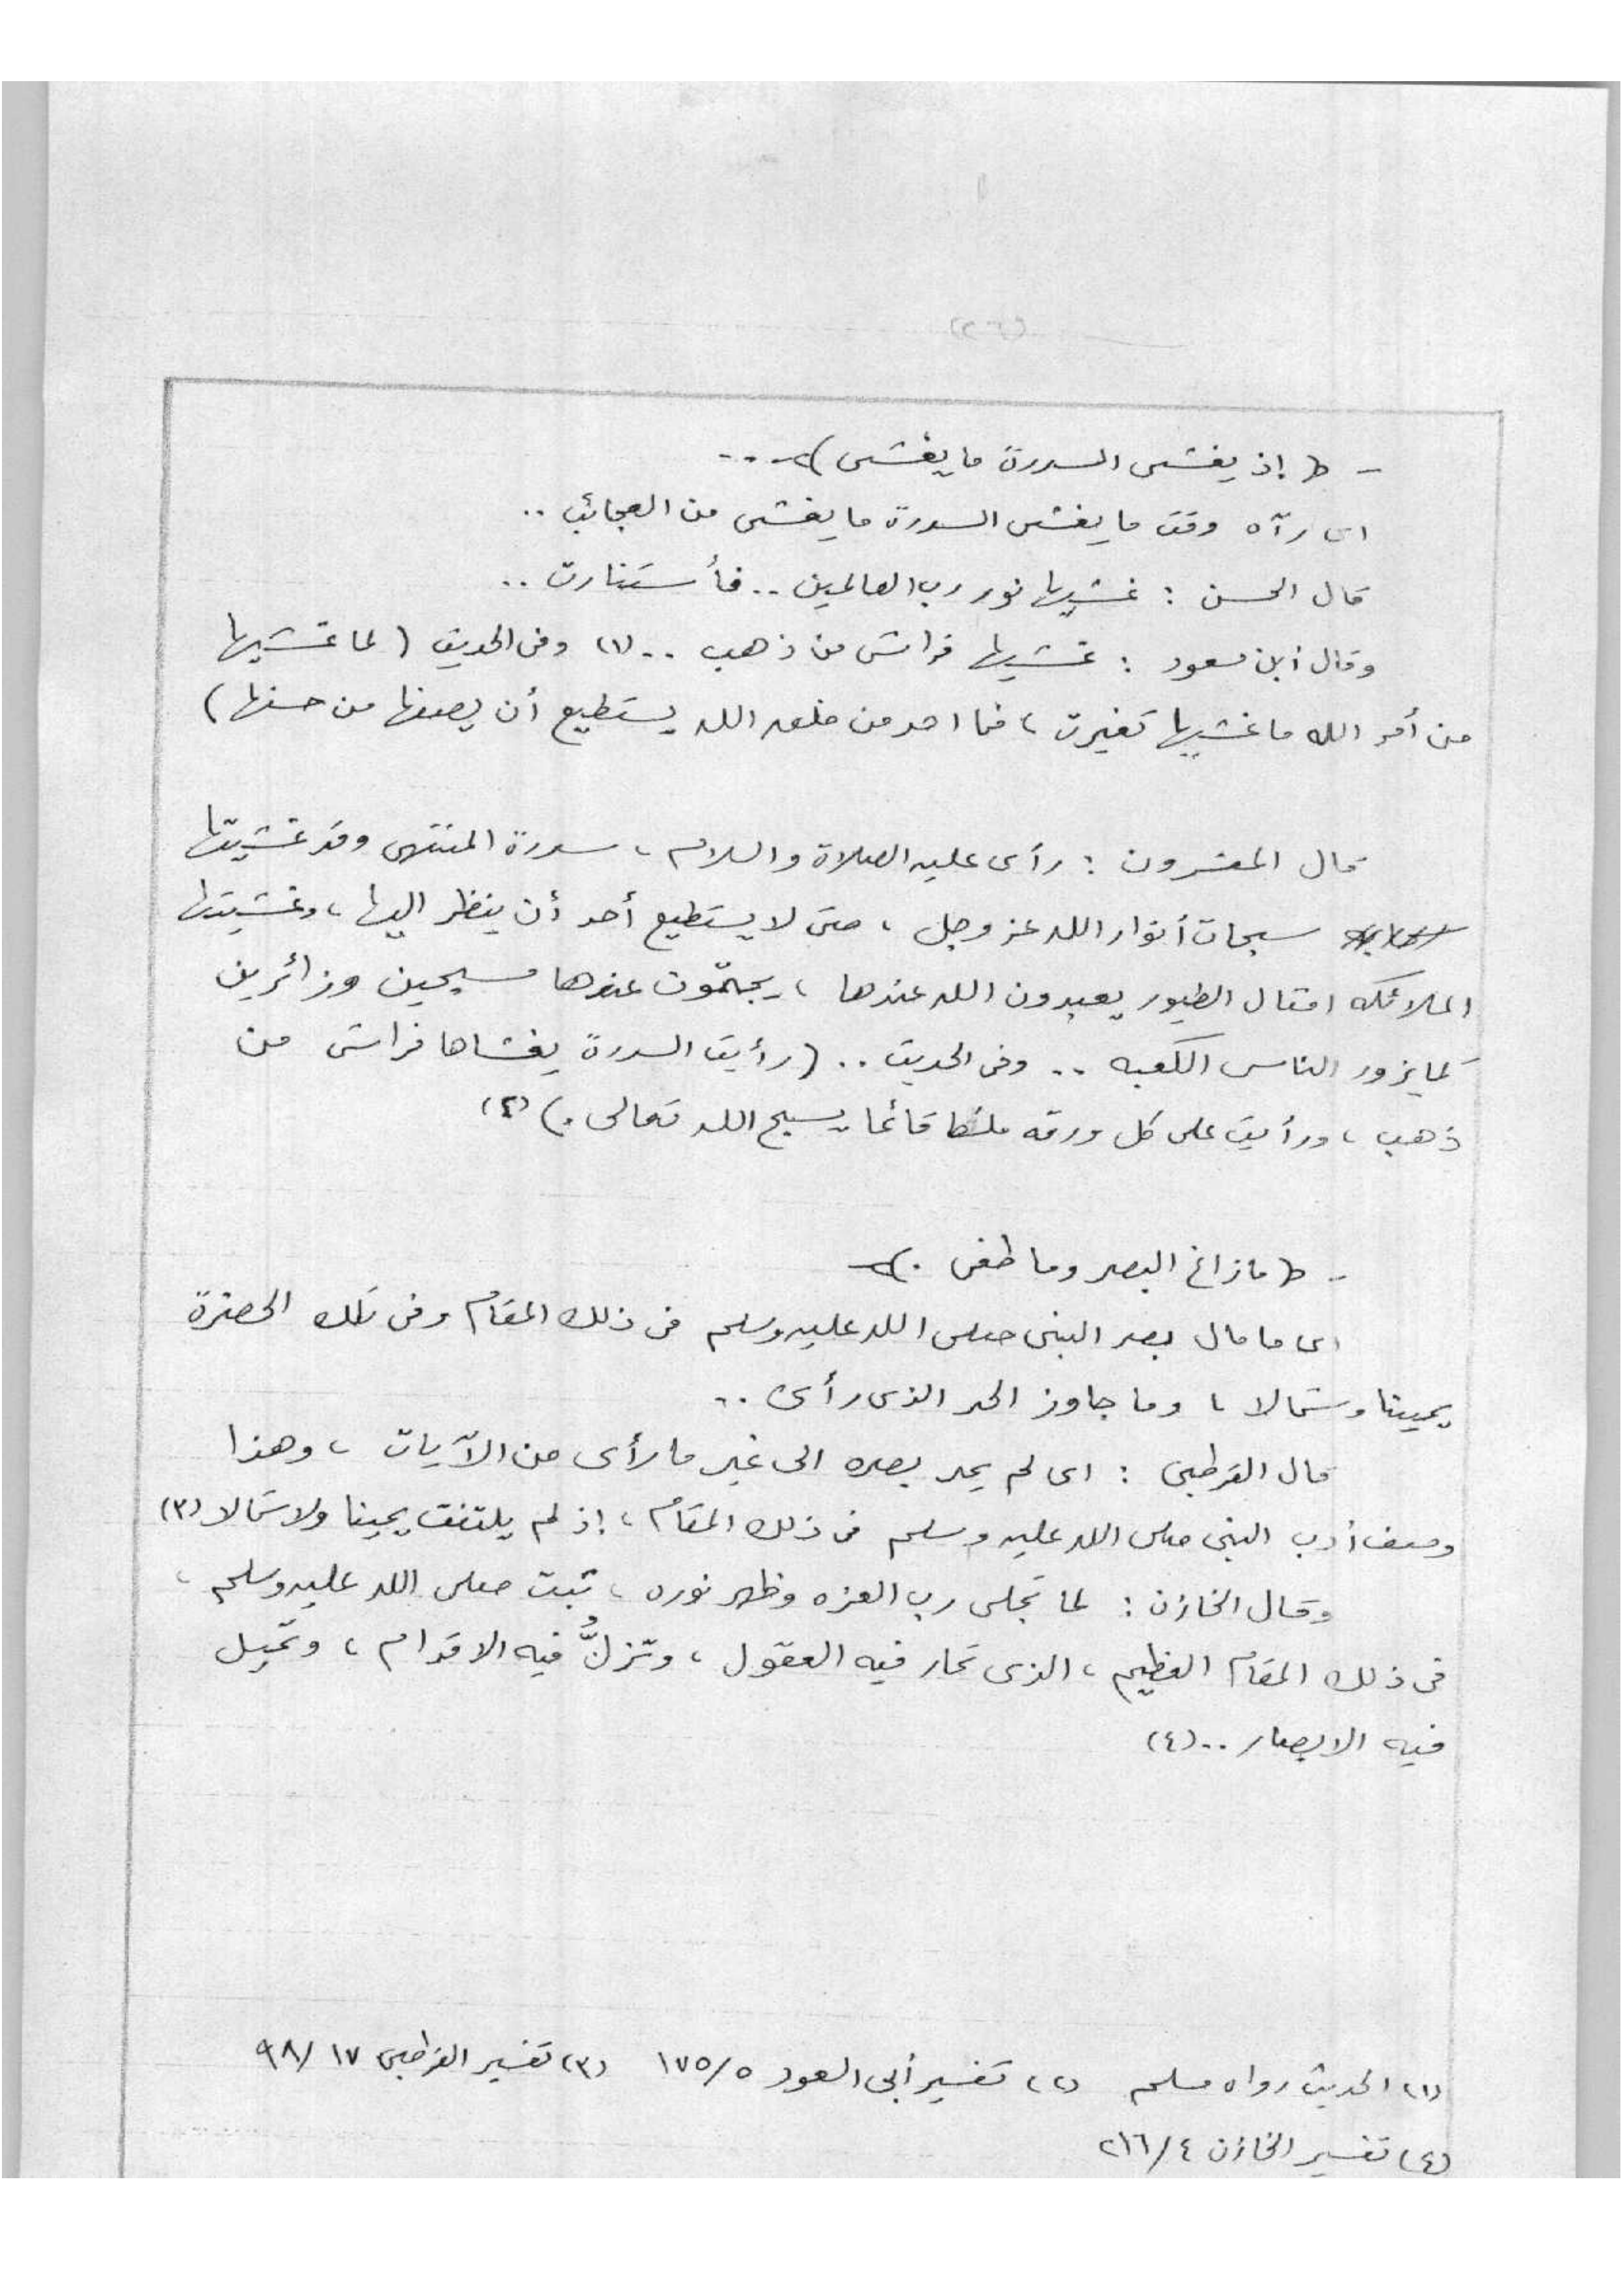 (٢٦)
- ﴿ إذ يغشى السدرة ما يغشى ﴾ ...
اى رآه وقت ما يغشى السدرة ما يغشى من العجائب ..
قال الحسن : غشيها نور رب العالمين .. فأستنارت ..
وقال أبن مسعود : غشيها فراش من ذهب .. (١) وفى الحديث ( لما غشيها
من أمر الله ما غشيها تغيرت ، فما احد من خلق الله يستطيع أن يصفها من حسنها )
قال المفسرون : رأى عليه الصلاة والسلام ، سدرة المنتهى وقد غشيتها
سبحات أنوار الله عز وجل ، حتى لا يستطيع أحد أن ينظر اليها ، وغشيتها
الملائكه امثال الطيور يعبدون الله عندها ، يجتمعون عندها مسبحين وزائرين
كما يزور الناس الكعبه .. وفى الحديث .. ( رأيت السدرة يغشاها فراش من
ذهب ، ورأيت على كل ورقه ملكا قائما يسبح الله تعالى . ) (٢)
- ﴿ ما زاغ البصر وما طغى . ﴾
اى ما مال بصر النبى صلى الله عليه وسلم فى ذلك المقام وفى تلك الحضرة
يمينا وشمالا ، وما جاوز الحد الذى رأى ..
قال القرطبى : اى لم يمد بصره الى غير ما رأى من الآيات ، وهذا
وصف أدب النبى صلى الله عليه وسلم فى ذلك المقام ، إذ لم يلتفت يمينا ولا شمالا (٣)
وقال الخازن : لما تجلى رب العزه وظهر نوره ، ثبت صلى الله عليه وسلم ،
فى ذلك المقام العظيم ، الذى تحار فيه العقول ، وتزلُّ فيه الاقدام ، وتميل
فيه الابصار .. (٤)
(١) الحديث رواه مسلم (٢) تفسير أبى السعود ٥/ ١٧٥ (٣) تفسير القرطبى ١٧/ ٩٨
(٤) تفسير الخازن ٤/ ٢١٦